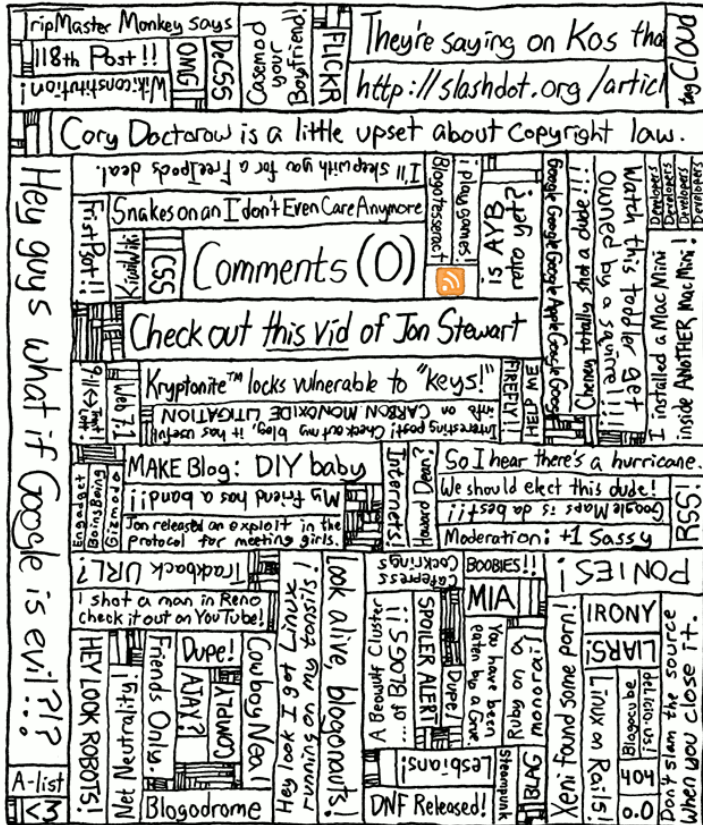 TripMaster Monkey says
118th Post!!
Wikiconstitution!
OMG
DeCSS
Casemod
your
Boyfriend!
FLICKR
They're saying on Kos tha
http://slashdot.org/articl
tag Cloud
Cory Doctorow is a little upset about copyright law.
Hey guys what if Google is evil?!?
I'll sleep with you for a FreeIpods deal.
Snakes on an I don't Even Care Anymore
Frist Psot!!
KiwiWiki
CSS
Comments (0)
Blogotesseract
i play games!
is AYB
retro yet?
Google Google Google Apple Google Goog
Cheney totally shot a dude!!!
Watch this toddler get
Owned by a squirrel!!!
Developers
Developers
Developers
Developers
I installed a Mac Mini
inside ANOTHER Mac Mini!
Check out this vid of Jon Stewart
9-11 <-> Trent
Lott!
Web 7.1
Kryptonite™ locks vulnerable to "keys!"
Interesting post! Check out my blog, it has useful
info on CARBON MONOXIDE LITIGATION
HELP ME
FIREFLY!!
Engadget
BoingBoing
Gizmodo
MAKE Blog: DIY baby
My friend has a band!!
Jon released an exploit in the
protocol for meeting girls.
Internets!
Howard Dean?
So I hear there's a hurricane.
We should elect this dude!
Google Maps is da best!!
Moderation: +1 Sassy
RSS!
Trackback URL?
I shot a man in Reno
check it out on YouTube!
HEY LOOK ROBOTS!
Net Neutrality!
Friends Only.
Dupe!
AJAX?
COMPLY
CowboyNeal
Blogodrome
Hey look I got Linux
running on my tonsils!
Look alive, blogonauts!
Cafepress
Cockrings
BOOBIES!!
PONIES!
A Beowulf Cluster
... of BLOGS!!
SPOILER ALERT
Dupe!
MIA
You have been
eaten by a Grue.
Ruby on a
monorail
Lesbians!
DNF Released!
Steampunk
BLAG
Xeni found some porn!
IRONY
LIARS!
Linux on Rails!
Blagocube
del.icio.us!
404
0.0
Don't slam the source
When you close it.
A-list
<3